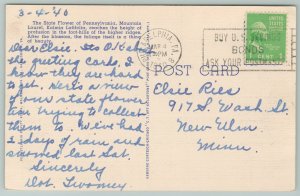 3-4-40
The State Flower of Pennsylvania, Mountain
Laurel, Kalmia Latifolia, reaches the height of
profusion in the foot-hills of the higher ridges.
After the blossom, the foliage itself is a thing
of beauty.
Dear Elsie, its O.K. about
the greeting cards, I
know they are hard
to get. Here's a view
of our state flower
I'm trying to collect
them to. We've had
2 days of rain and
snowed last Sat.
Sincerely
Dot. Twomey
PHILADELPHIA, PA.
MAR 4
PM
BUY U.S.
BONDS
ASK YOUR
1 CENT 1
POST CARD
Elsie Ries
917 S. Wash. St
New Ulm,
Minn.